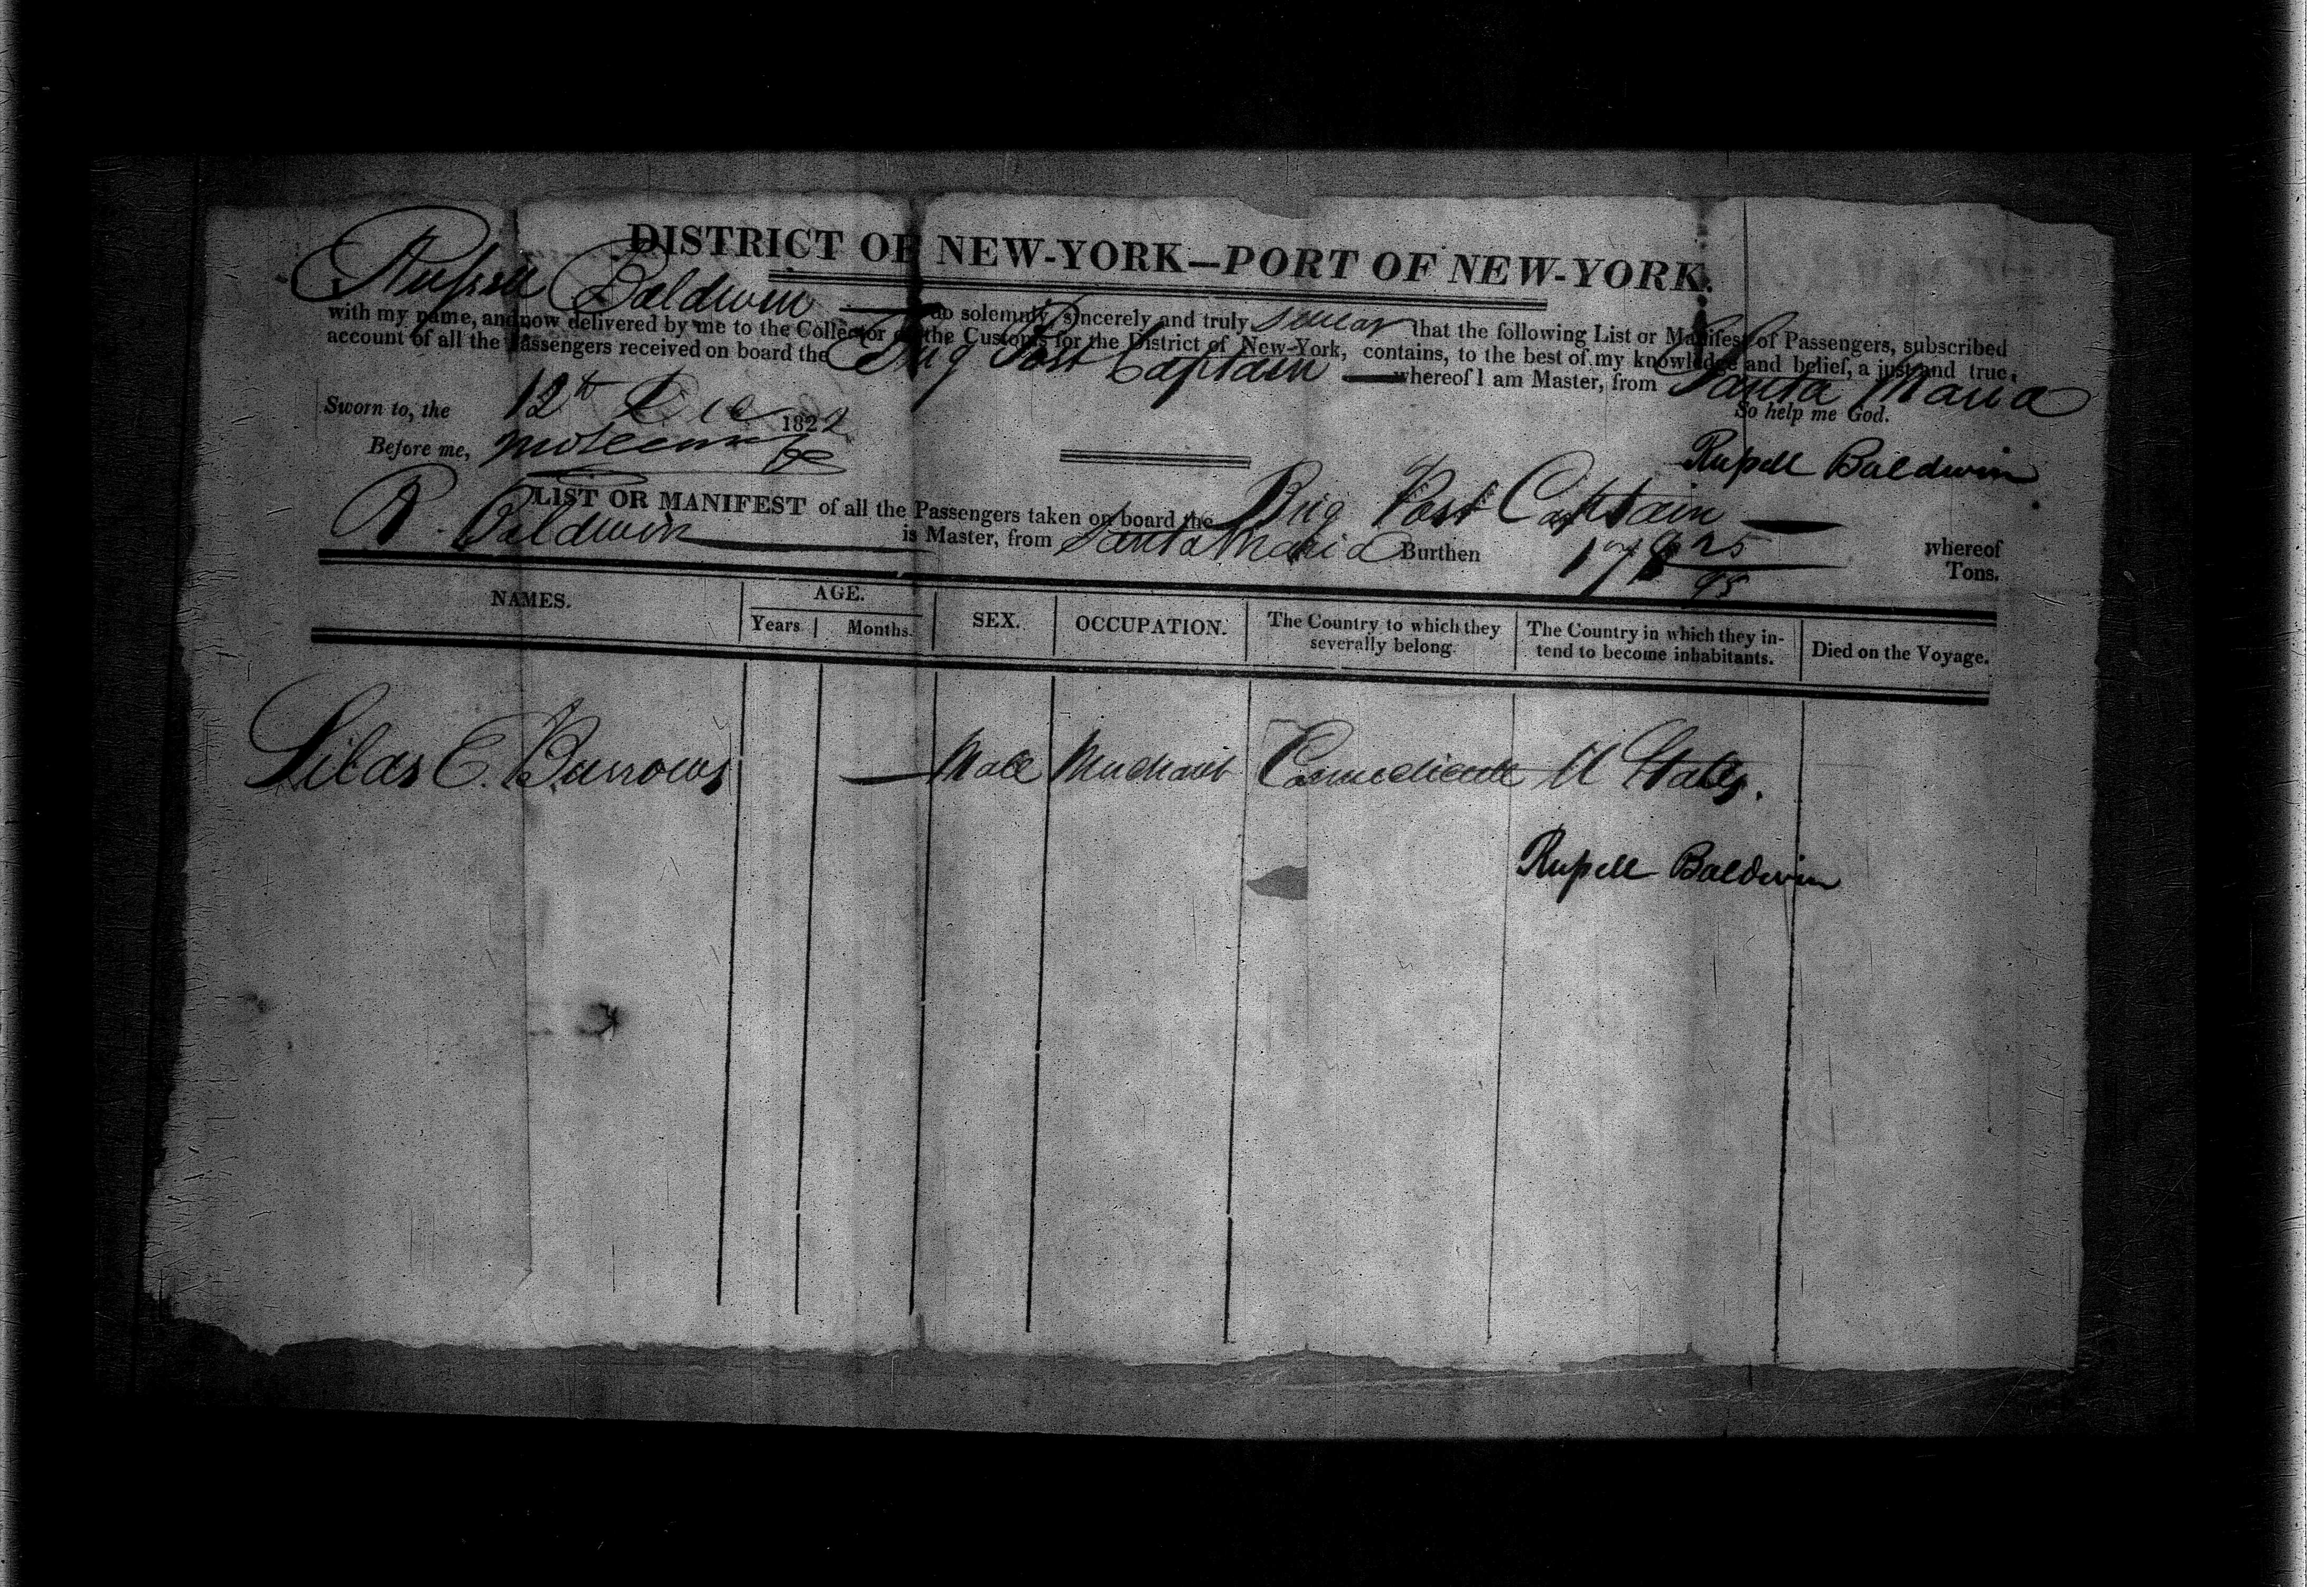 DISTRICT OF NEW-YORK—PORT OF NEW-YORK.
Russell Baldwin do solemnly, sincerely and truly swear that the following List or Manifest of Passengers, subscribed
with my name, and now delivered by me to the Collector of the Customs for the District of New-York, contains, to the best of my knowledge and belief, a just and true,
account of all the Passengers received on board the Brig Post Captain whereof I am Master, from Santa Maria
Sworn to, the 12th Dec 1822 So help me God.
Before me,
Russell Baldwin
LIST OR MANIFEST of all the Passengers taken on board the Brig Post Captain whereof
R. Baldwin is Master, from Santa Maria Burthen 178 25/95 Tons.
NAMES. AGE. SEX. OCCUPATION. The Country to which they severally belong. The Country in which they intend to become inhabitants. Died on the Voyage.
Years Months.
Silas E. Burrows Male Merchant Connecticutt U States.
Russell Baldwin